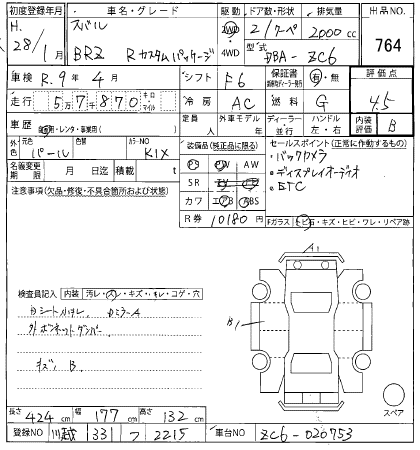 初度登録年月 車名・グレード 駆動 ドア数・形状 排気量 出品NO.
H. 28/1月 スバル BRZ Rカスタムパッケージ 2WD 4WD 2/クーペ 2000cc 764
型式 DBA-ZC6
車検 R.9年4月 シフト F6 保証書 有・無 評価点
走行 57870 キロ・マイル 冷房 AC 燃料 G 4.5
車歴 自家用・レンタ・事業用( ) 定員 人 外車モデル 年 ディーラー 並行 ハンドル 左・右 内装評価 B
外色 元色 パール カラーNO K1X
装備品(純正品に限る) セールスポイント(正常に作動するもの)
名義変更期限 月 日迄 積載 t PS PW AW ・バックカメラ
注意事項(欠品・修復・不具合箇所および状態) SR ・ディスプレイオーディオ
カワ エアB ABS ・ETC
R券 10180円 Fガラス 飛石・キズ・ヒビ・ワレ・リペア跡
A1
検査員記入 内装 汚レ・スレ・キズ・ ・コゲ・穴
B1
外ボンネットダンパー
キズ B
スペア
長さ 424cm 幅 177cm 高さ 132cm
登録NO 川越 331 フ 2215 車台NO ZC6-020753